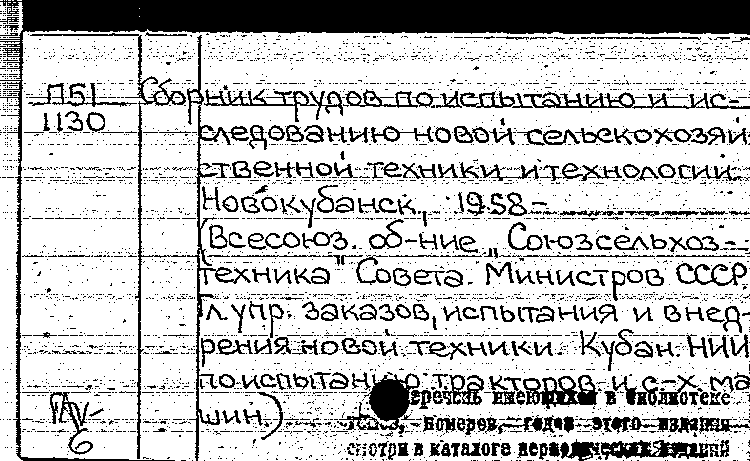 П51 Сборник трудов по испытанию и ис-
1130 следованию новой сельскохозяй
ственной техники и технологии.
Новокубанск, 1958-
(Всесоюз. об-ние „Союзсельхоз-
техника" Совета. Министров СССР.
Гл. упр. заказов, испытания и внед-
рения новой техники. Кубан. НИИ
по испытанию тракторов и с-х. ма
шин.)
6
перечень имеющихся в библиотеке
номеров, годов этого издания
смотри в каталоге периодических изданий